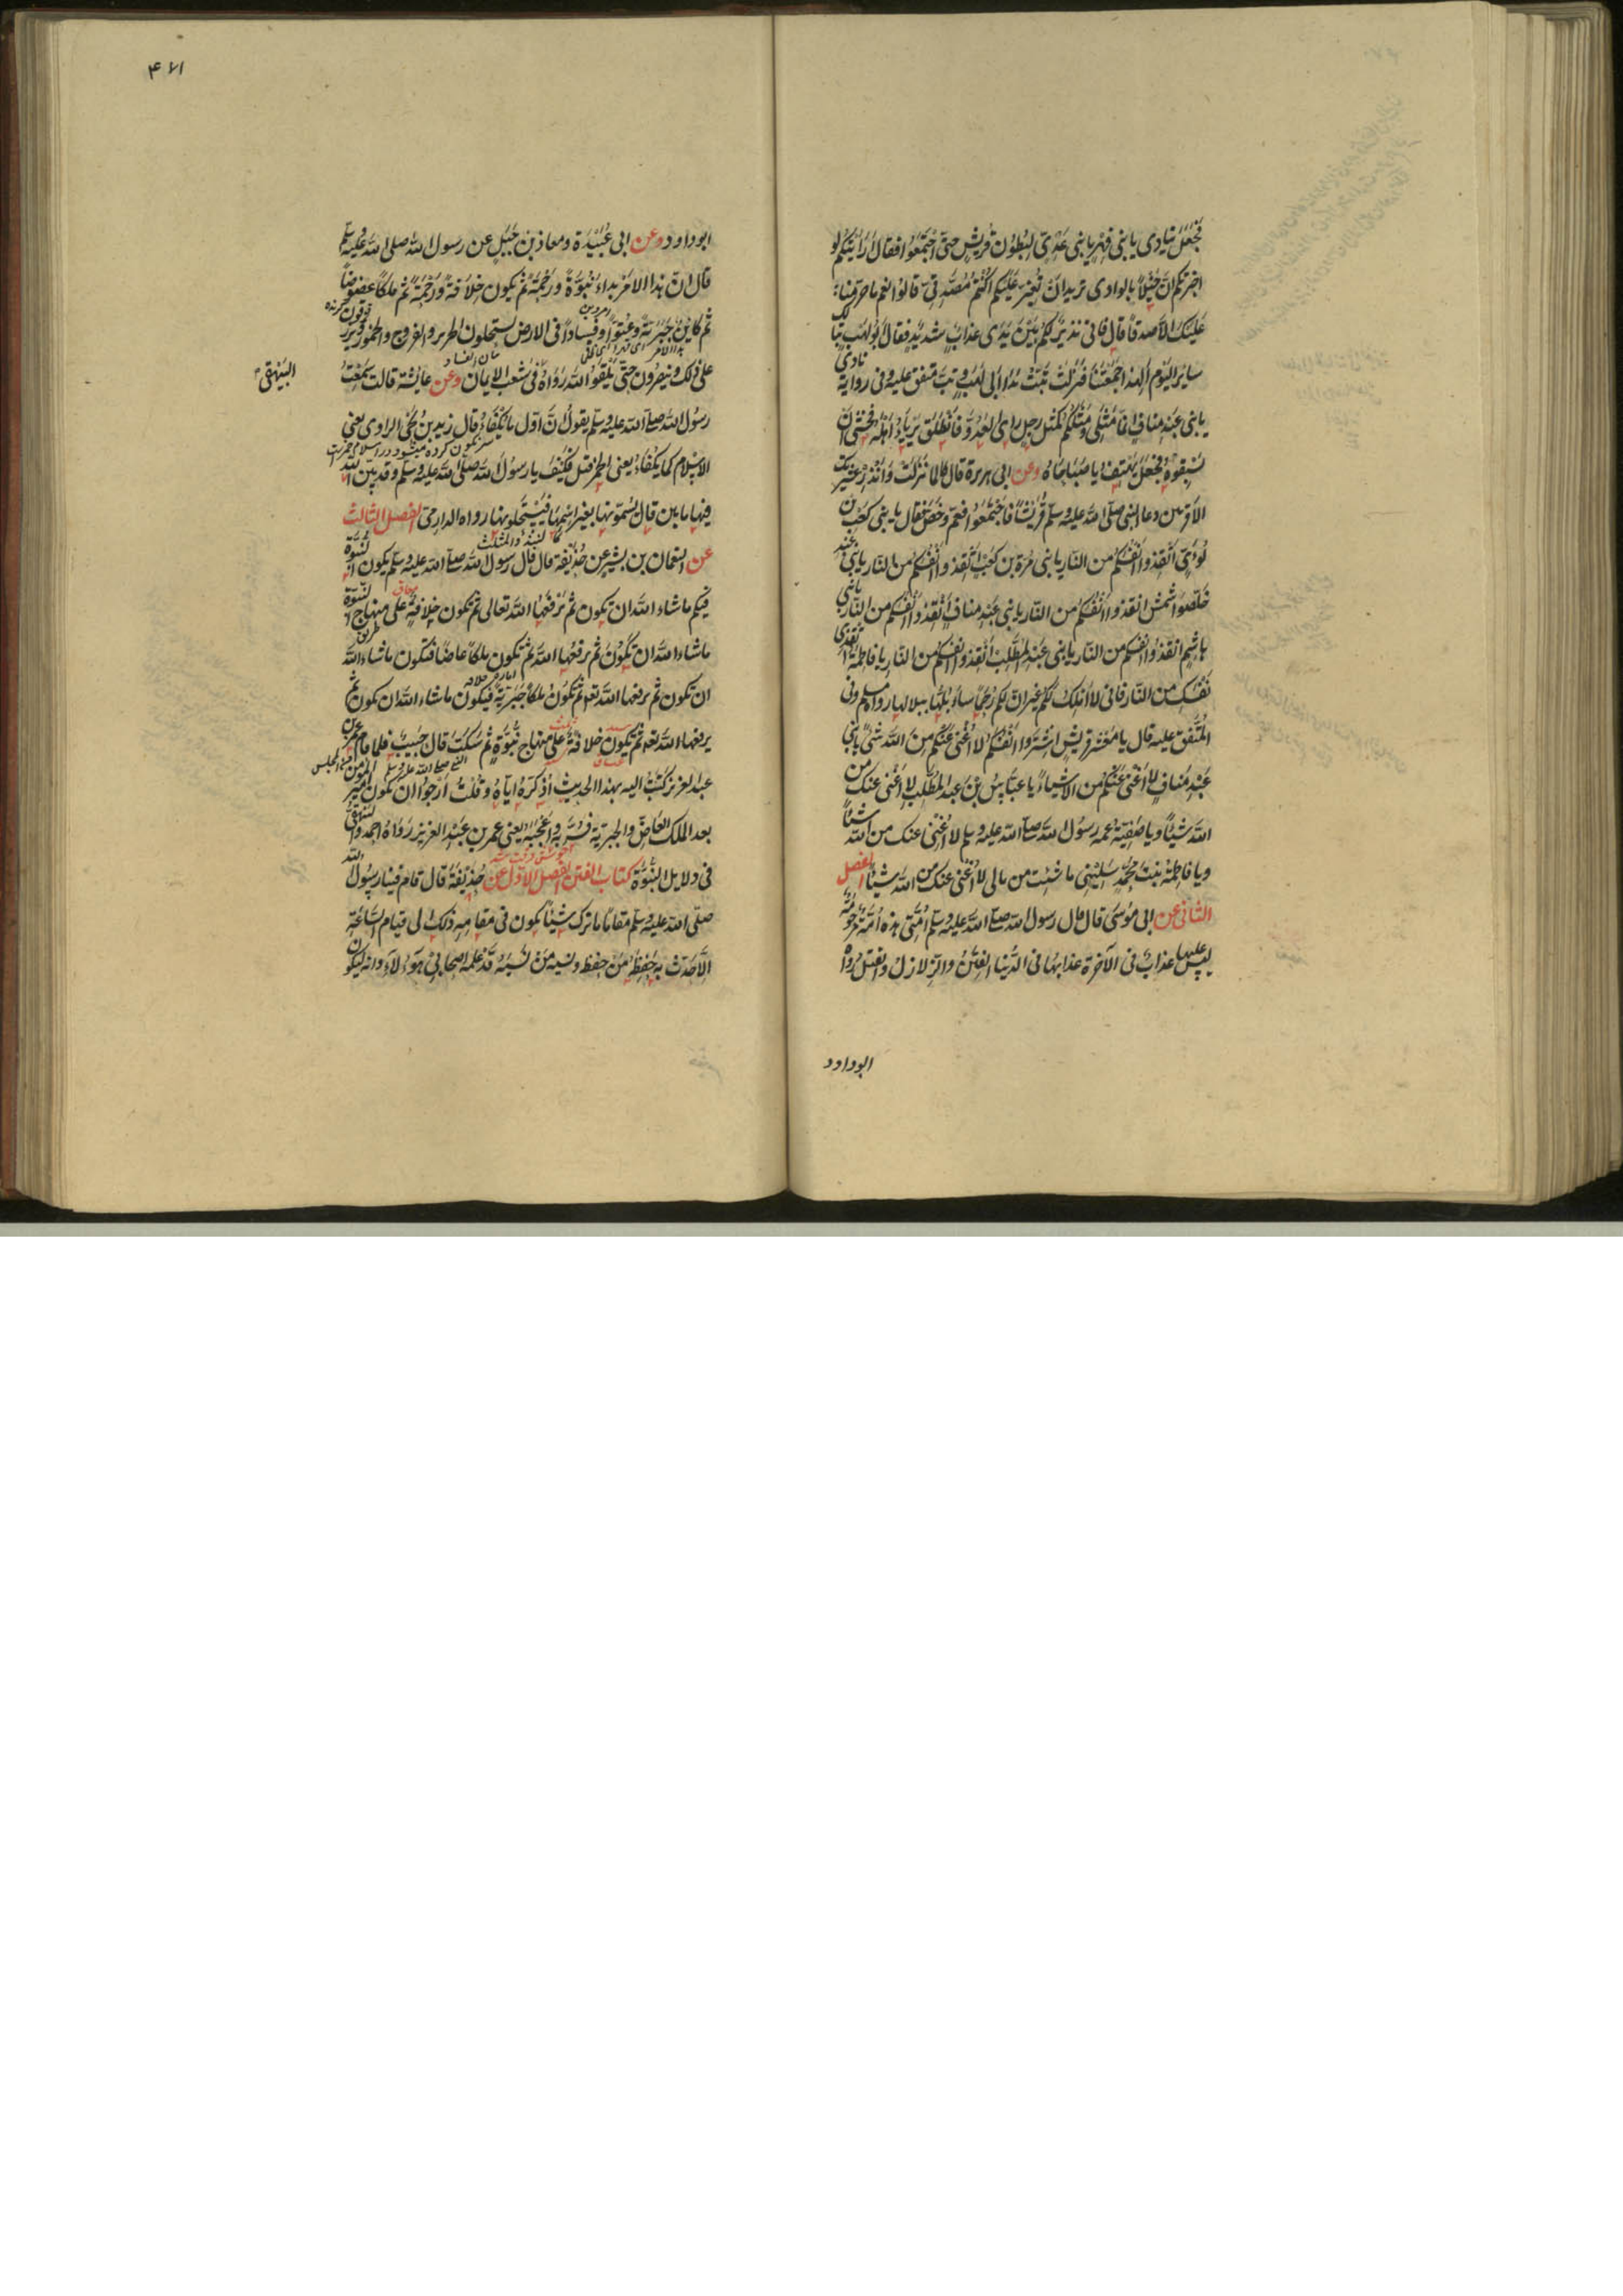 فجعل ينادى يا بنى فهر يا بنى عدى لبطون قريش حتى اجتمعوا فقال ارأيتكم لو
اخبرتكم ان خيلا بالوادى تريد ان تغير عليكم اكنتم مصدقى قالوا نعم ما جربنا
عليك الا صدقا قال فانى نذير لكم بين يدى عذاب شديد فقال ابو لهب تبا لك
سائر اليوم الهذا جمعتنا فنزلت تبت يدا ابى لهب وتب متفق عليه وفى رواية نادى
يا بنى عبد مناف انما مثلى ومثلكم كمثل رجل راى العدو فانطلق يربأ اهله فخشى ان
يسبقوه فجعل يهتف يا صباحاه وعن ابى هريرة قال لما نزلت وانذر عشيرتك
الاقربين دعا النبى صلى الله عليه وسلم قريشا فاجتمعوا فعم وخص فقال يا بنى كعب بن
لؤى انقذوا انفسكم من النار يا بنى مرة بن كعب انقذوا انفسكم من النار يا بنى عبد
شمس انقذوا انفسكم من النار يا بنى عبد مناف انقذوا انفسكم من النار يا بنى
هاشم انقذوا انفسكم من النار يا بنى عبد المطلب انقذوا انفسكم من النار يا فاطمة انقذى
نفسك من النار فانى لا املك لكم غير ان لكم رحما سأبلها ببلالها رواه مسلم وفى
المتفق عليه قال يا معشر قريش اشتروا انفسكم لا اغنى عنكم من الله شئ يا بنى
عبد مناف لا اغنى عنكم من الله شيئا يا عباس بن عبد المطلب لا اغنى عنك من
الله شيئا ويا صفية عمة رسول الله صلى الله عليه وسلم لا اغنى عنك من الله شيئا
ويا فاطمة بنت محمد سلينى ما شئت من مالى لا اغنى عنك من الله شيئا الفصل
الثانى عن ابى موسى قال قال رسول الله صلى الله عليه وسلم امتى هذه امة مرحومة
ليس عليها عذاب فى الآخرة عذابها فى الدنيا الفتن والزلازل والقتل رواه
ابو داود
۴۷۱
ابو داود وعن ابى عبيدة ومعاذ بن جبل عن رسول الله صلى الله عليه وسلم
قال ان هذا الامر بداء نبوة ورحمة ثم يكون خلافة ورحمة ثم ملكا عضوضا
ثم كاين جبرية وعتوا وفسادا فى الارض يستحلون الحرير والفروج والخمور يرزقون
على ذلك وينصرون حتى يلقوا الله رواه فى شعب الايمان وعن عائشة قالت سمعت
البيهقى
رسول الله صلى الله عليه وسلم يقول ان اول ما يكفاء قال زيد بن يحيى الراوى يعنى
الاسلام كما يكفاء يعنى الخمر قيل فكيف يا رسول الله صلى الله عليه وسلم وقد بين الله
فيها ما بين قال يسمونها بغير اسمها فيستحلونها رواه الدارمى الفصل الثالث
عن النعمان بن بشير عن حذيفة قال قال رسول الله صلى الله عليه وسلم يكون النبوة
فيكم ما شاء الله ان تكون ثم يرفعها الله تعالى ثم تكون خلافة على منهاج النبوة
ما شاء الله ان تكون ثم يرفعها الله ثم تكون ملكا عاضا فتكون ما شاء الله
ان تكون ثم يرفعها الله تعه ثم تكون ملكا جبرية فيكون ما شاء الله ان تكون ثم
يرفعها الله تعه ثم تكون خلافة على منهاج نبوة ثم سكت قال حبيب فلما قام عمر بن
عبد العزيز كتبت اليه بهذا الحديث اذكره اياه وقلت ارجوا ان تكون امير المؤمنين
بعد الملك العاض والجبرية فسر به واعجبه يعنى عمر بن عبد العزيز رواه احمد والبيهقى
فى دلايل النبوة كتاب الفتن الفصل الاول عن حذيفة قال قام فينا رسول الله
صلى الله عليه وسلم مقاما ما ترك شيئا يكون فى مقامه ذلك الى قيام الساعة
الا حدث به حفظه من حفظ ونسيه من نسيه قد علمه اصحابى هؤلاء وانه ليكون